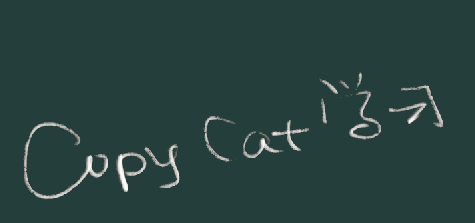 Copy Cat 学习